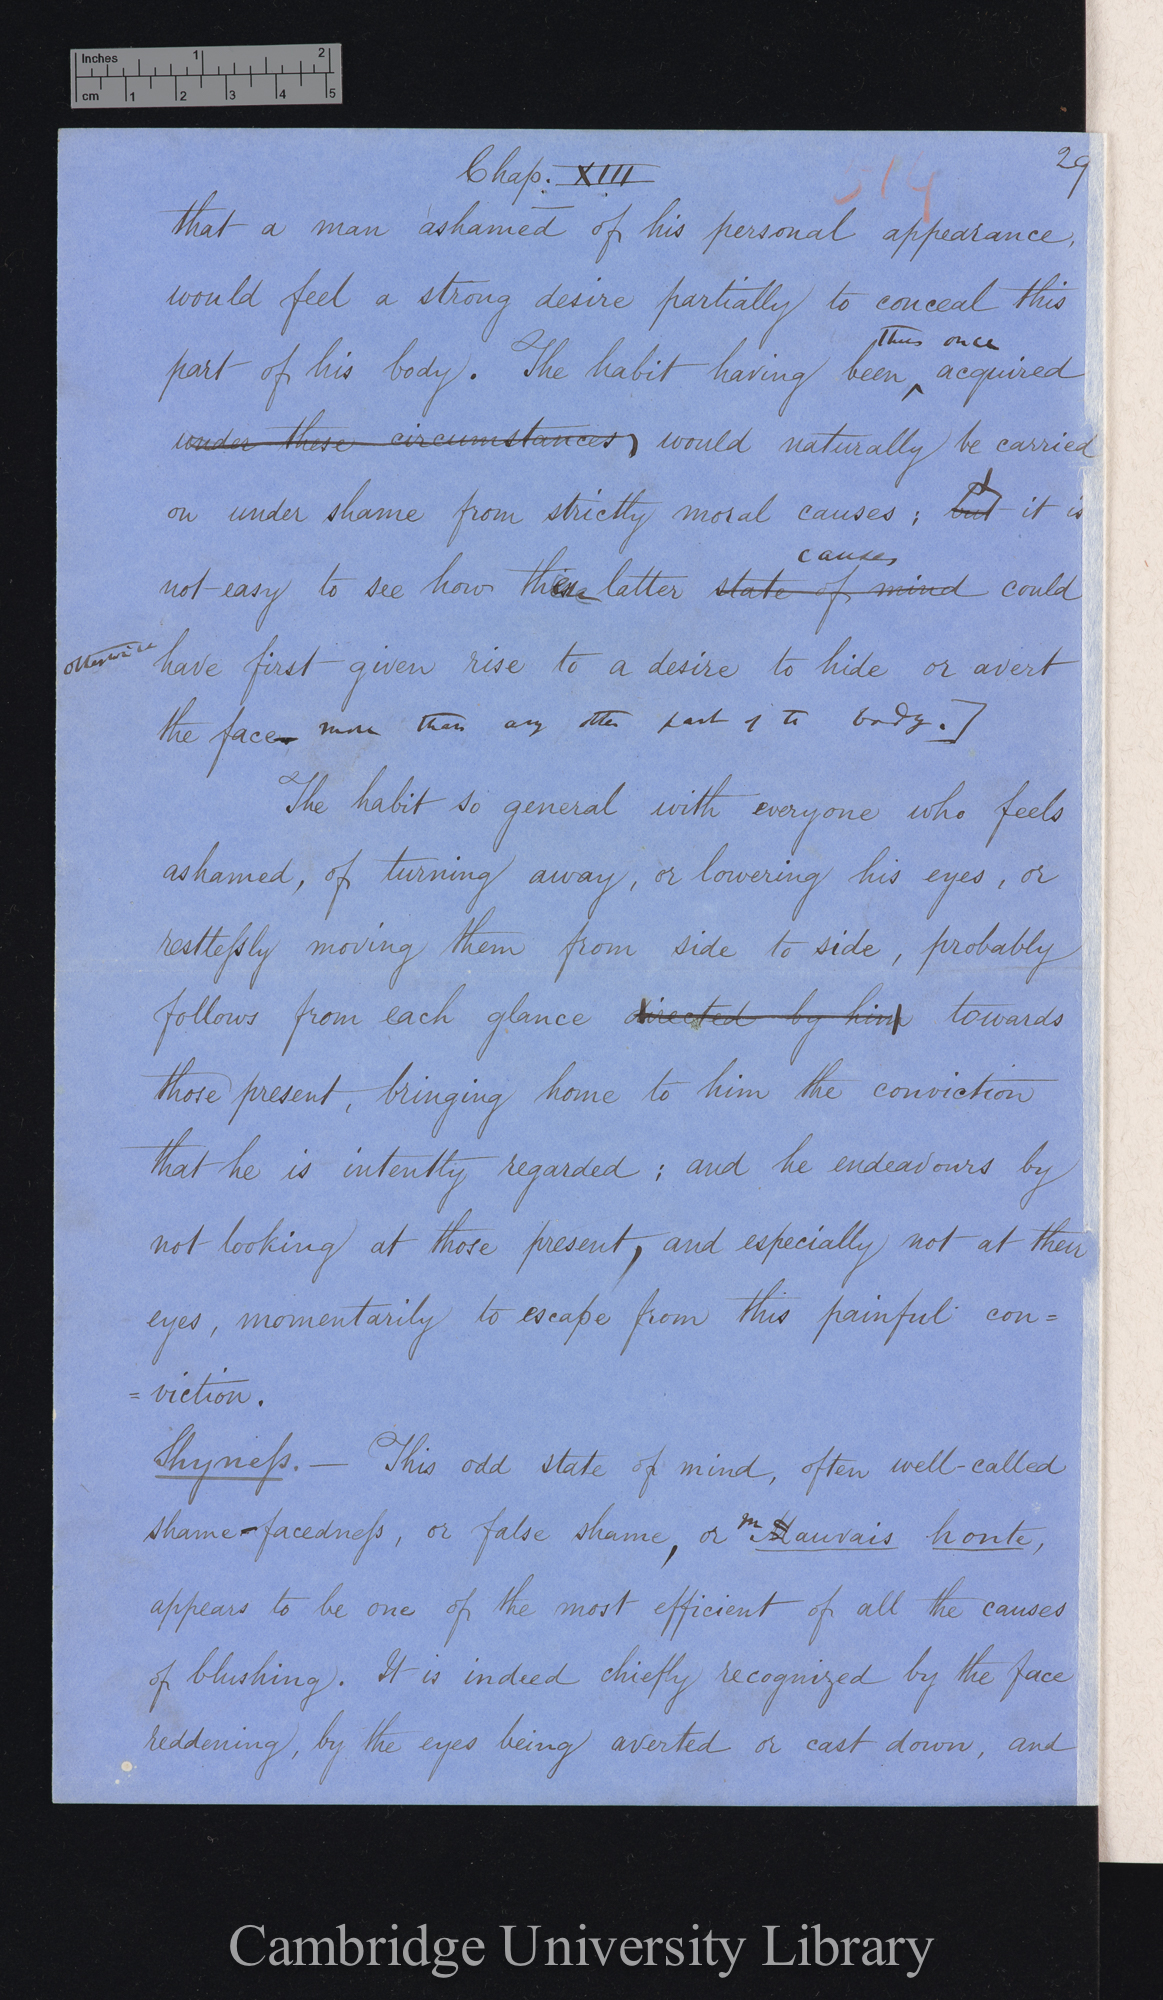 Inches 1 2
cm 1 2 3 4 5
Chap. XIII 29
that a man ashamed of his personal appearance,
would feel a strong desire partially to conceal this
thus once
part of his body. The habit having been ^ acquired
under these circumstances, would naturally be carried
on under shame from strictly moral causes; but it is
causes
not easy to see how these latter state of mind could
otherwise have first given rise to a desire to hide or avert
the face more than any other part of the body.]
The habit so general with everyone who feels
ashamed, of turning away, or lowering his eyes, or
restlessly moving them from side to side, probably
follows from each glance directed by him towards
those present, bringing home to him the conviction
that he is intently regarded; and he endeavours by
not looking at those present, and especially not at their
eyes, momentarily to escape from this painful con=
=viction.
Shyness. — This odd state of mind, often well-called
shame-facedness, or false shame, or mauvais honte,
appears to be one of the most efficient of all the causes
of blushing. It is indeed chiefly recognized by the face
reddening, by the eyes being averted or cast down, and
Cambridge University Library